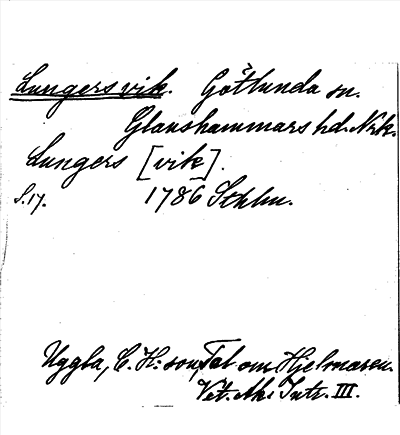 Lungersvik. Götlunda sn.
Glanshammars hd. Nrk.
Lungers [vik].
S.17. 1786 Sthlm.
Uggla, C. H:son, Tal om Hjelmaren.
Vet. Ak. Intr. III.